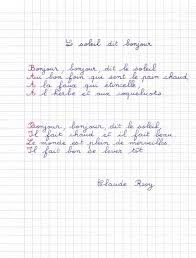 Le soleil dit bonjour
Bonjour, bonjour, dit le soleil
Au bon foin qui sent le pain chaud
A la faux qui étincelle,
A l'herbe et aux coquelicots
Bonjour, bonjour, dit le soleil
Il fait chaud et il fait beau
Le monde est plein de merveilles
Il fait bon se lever tôt
Claude Roy